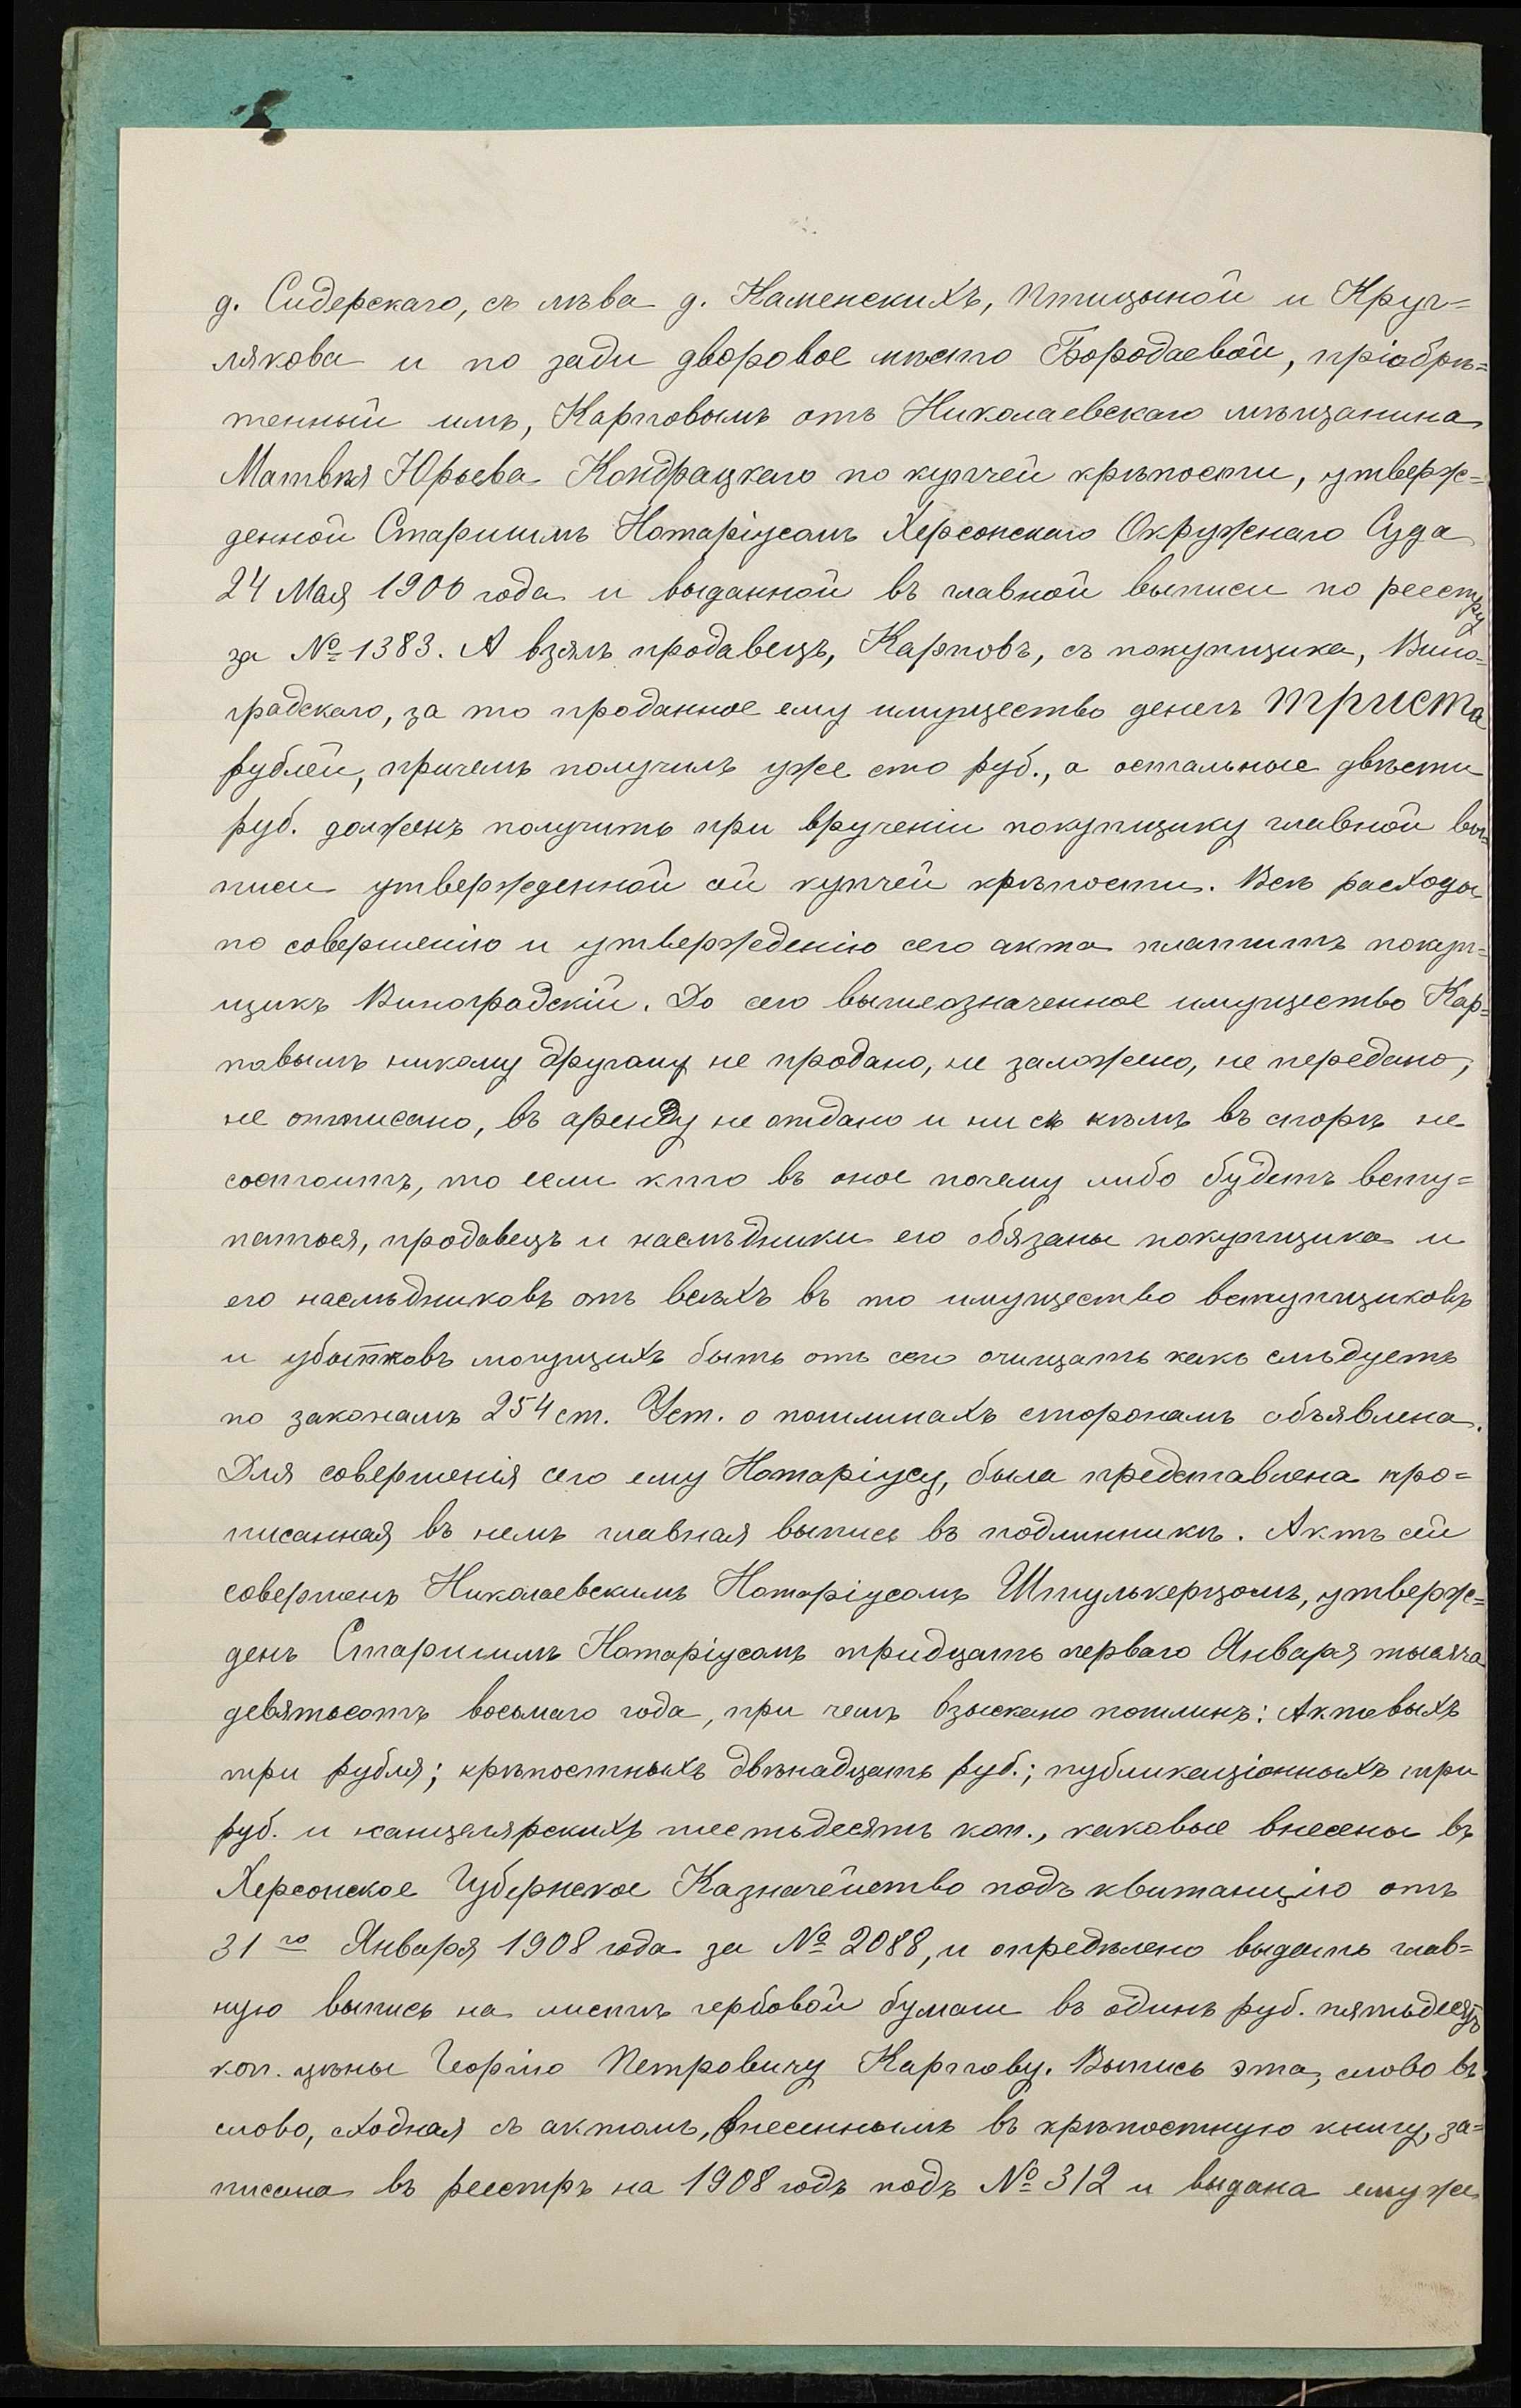 д. Сидерскаго, съ лѣва д. Каменскихъ, Птицыной и Круг=
лякова и по зади дворовое мѣсто Бородаевой, пріобрѣ=
тенный имъ, Карповымъ отъ Николаевскаго мѣщанина
Матвѣя Юрьева Кондрацкаго по купчей крѣпости, утверж=
денной Старшимъ Нотаріусомъ Херсонскаго Окружнаго Суда
24 Мая 1906 года и выданной въ главной выписи по реестру
за № 1383. А взялъ продавецъ, Карповъ, съ покупщика, Вино=
градскаго, за то проданное ему имущество денегъ триста
рублей, причемъ получилъ уже сто руб., а остальные двѣсти
руб. долженъ получить при врученіи покупщику главной вы=
писи утвержденной сей купчей крѣпости. Всѣ расходы
по совершенію и утвержденію сего акта платитъ покуп=
щикъ Виноградскій. До сего вышеозначенное имущество Кар=
повымъ никому другому не продано, не заложено, не передано,
не отписано, въ аренду не отдано и ни съ кѣмъ въ спорѣ не
состоитъ, то если кто въ оное почему либо будетъ всту=
паться, продавецъ и наслѣдники его обязаны покупщика и
его наслѣдниковъ отъ всѣхъ въ то имущество вступщиковъ
и убытковъ могущихъ быть отъ сего очищать какъ слѣдуетъ
по законамъ 254 ст. Уст. о пошлинахъ сторонамъ объявлена.
Для совершенія сего ему Нотаріусу, была представлена про=
писанная въ немъ главная выпись въ подлинникѣ. Актъ сей
совершенъ Николаевскимъ Нотаріусомъ Штулькерцомъ, утверж=
денъ Старшимъ Нотаріусомъ тридцать перваго Января тысяча
девятьсотъ восьмаго года, при чемъ взыскано пошлинъ: Актовыхъ
три рубля; крѣпостныхъ двѣнадцать руб.; публикаціонныхъ три
руб. и канцелярскихъ шестьдесятъ коп., каковые внесены въ
Херсонское Губернское Казначейство подъ квитанцію отъ
31го Января 1908 года за № 2088, и опредѣлено выдать глав=
ную выпись на листѣ гербовой бумаги въ одинъ руб. пятьдесятъ
коп. цѣны Георгію Петровичу Карпову. Выпись эта, слово въ
слово, сходная съ актомъ, внесеннымъ въ крѣпостную книгу, за=
писана въ реестръ на 1908 годъ подъ № 312 и выдана ему же